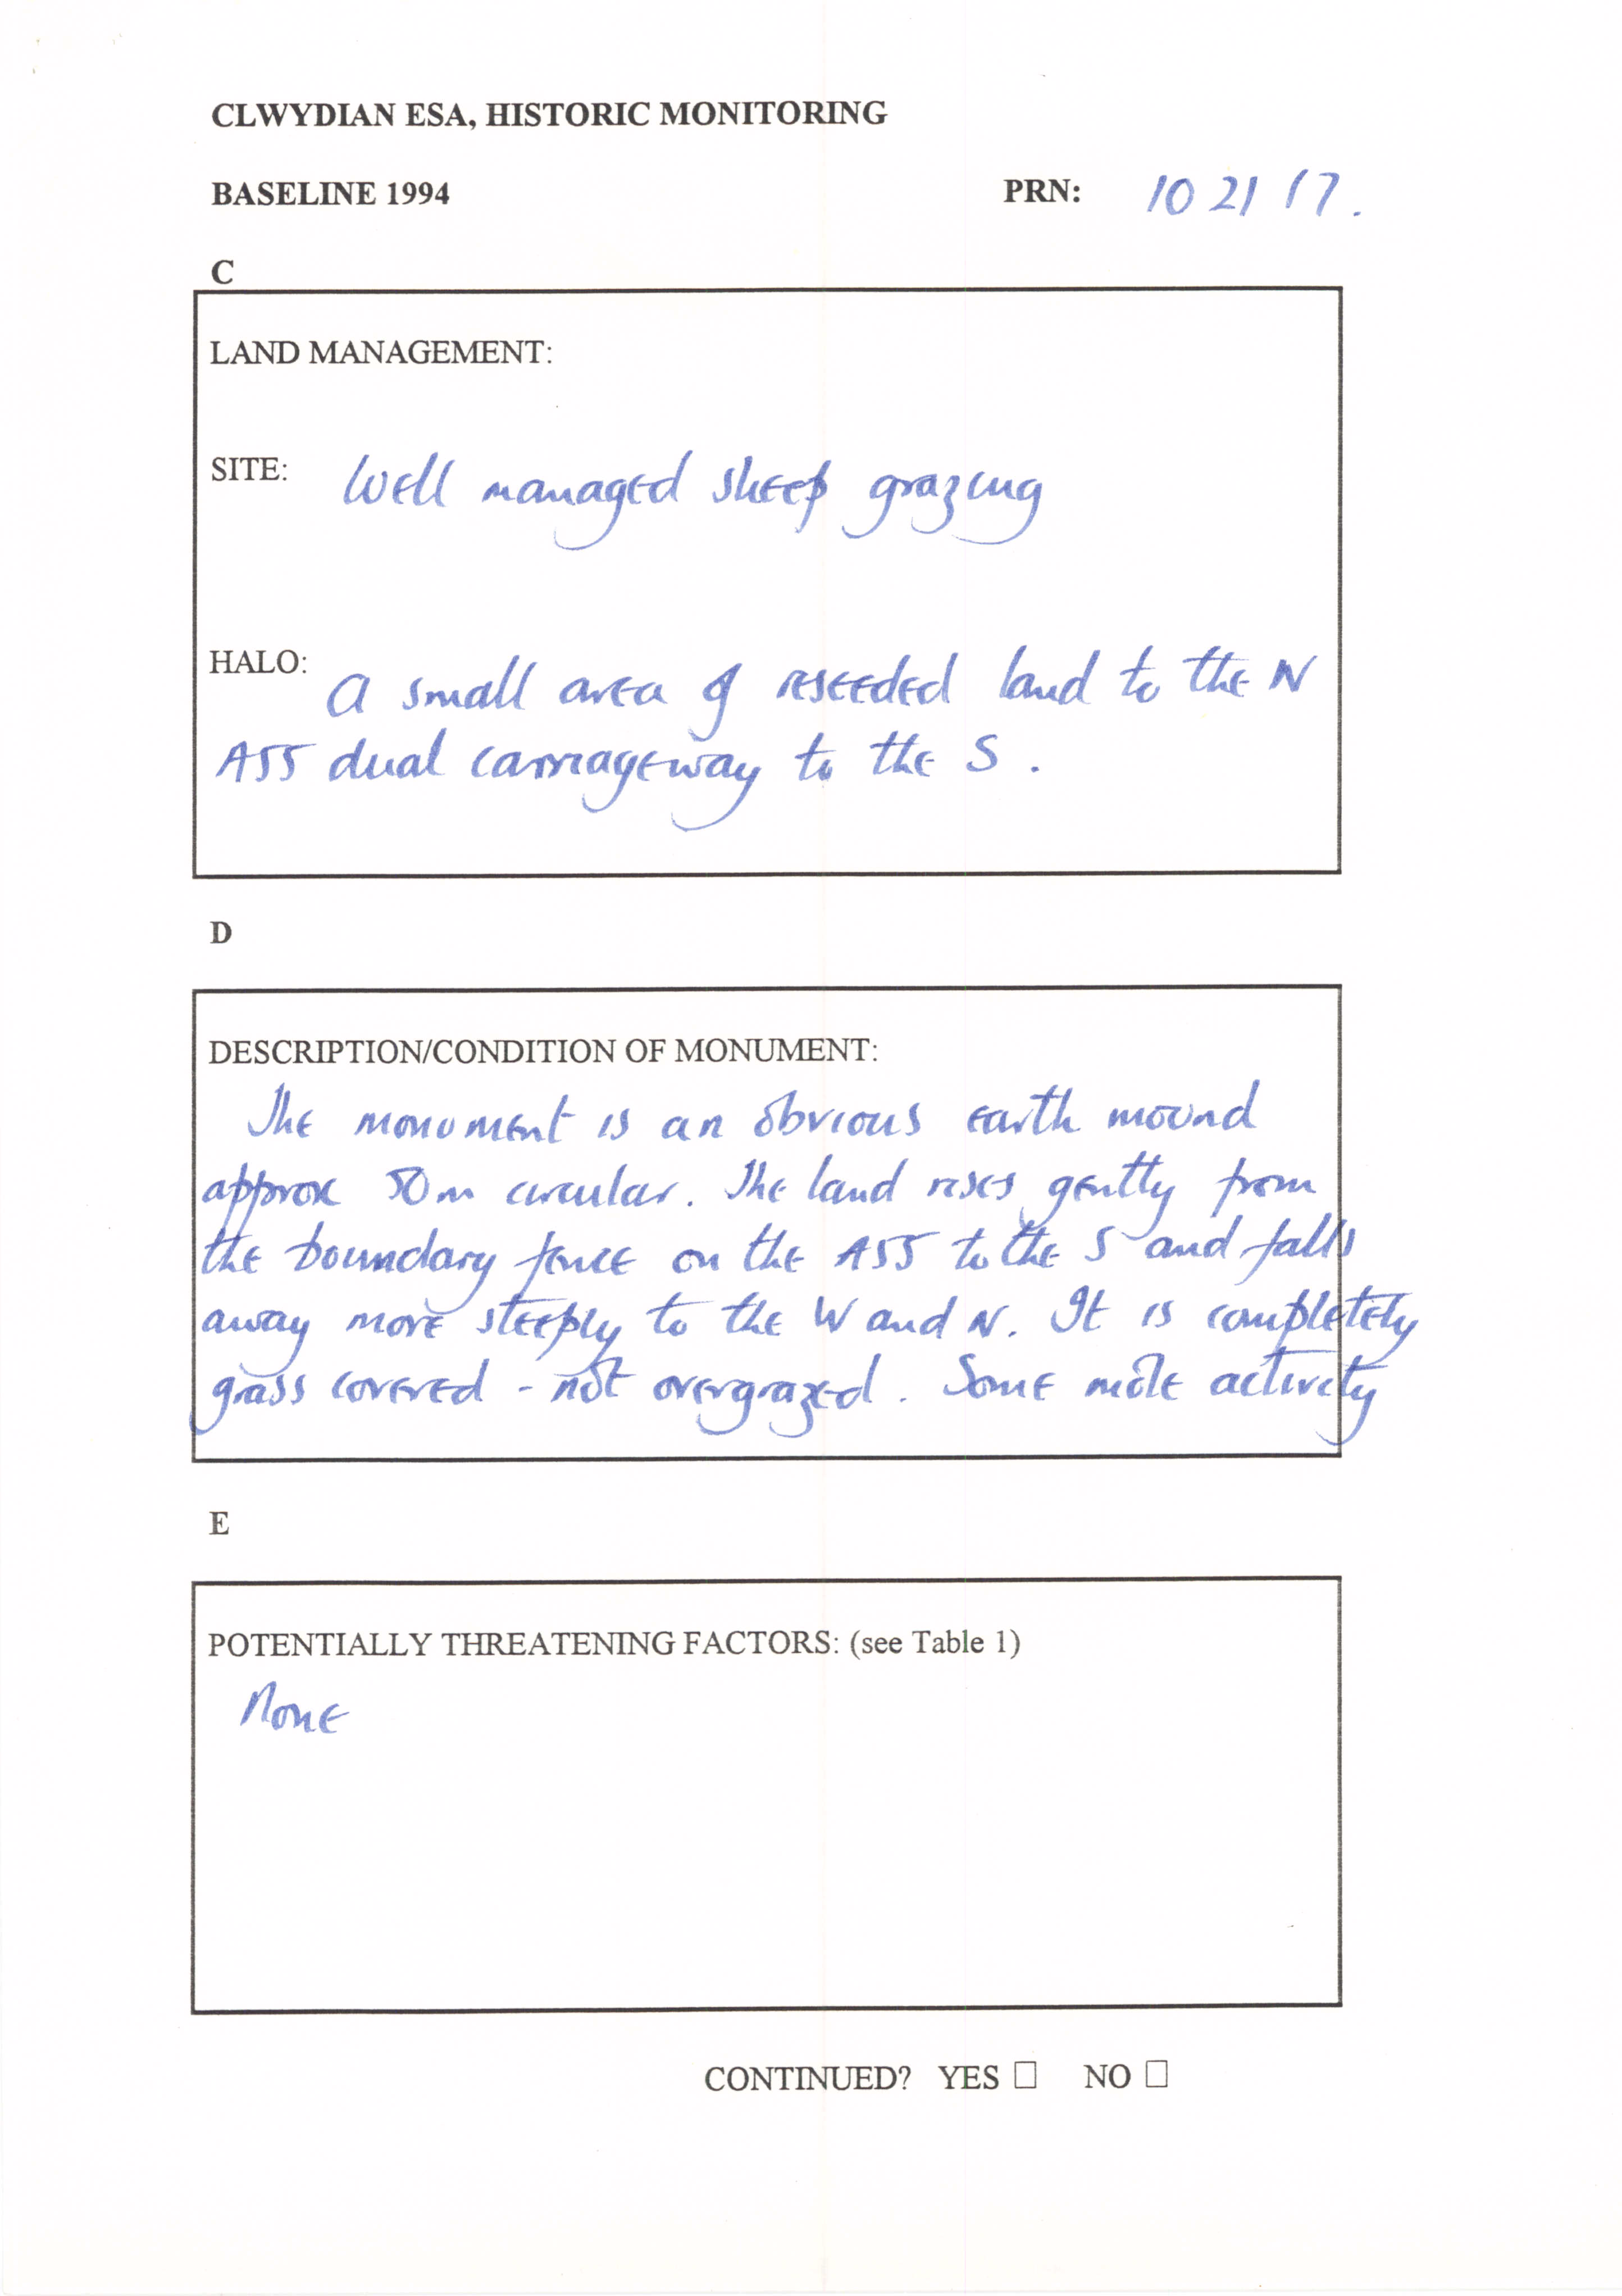 CLWYDIAN ESA, HISTORIC MONITORING
BASELINE 1994 PRN: 10 21 17.
C
LAND MANAGEMENT:
SITE: Well managed sheep grazing
HALO: A small area of reseeded land to the N
A55 dual carriageway to the S.
D
DESCRIPTION/CONDITION OF MONUMENT:
The monument is an obvious earth mound
approx 50m circular. The land rises gently from
the boundary fence on the A55 to the S and falls
away more steeply to the W and N. It is completely
grass covered - not overgrazed. Some mole activity
E
POTENTIALLY THREATENING FACTORS: (see Table 1)
None
CONTINUED? YES ☐ NO ☐